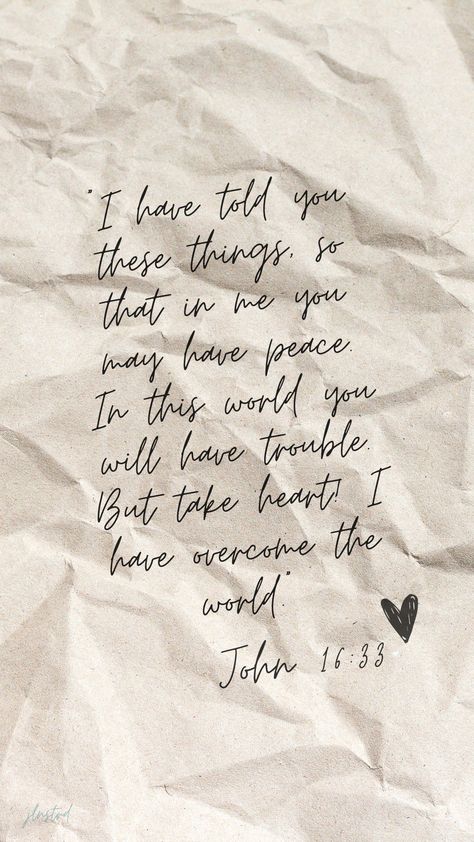 "I have told you
these things, so
that in me you
may have peace.
In this world you
will have trouble.
But take heart! I
have overcome the
world."
John 16:33